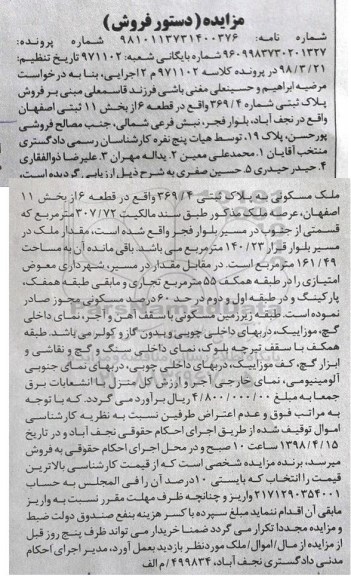 مزایده (دستور فروش)
شماره نامه: ۹۸۱۰۱۱۳۷۳۱۴۰۰۳۷۶ شماره پرونده:
۹۶۰۹۹۸۳۷۳۰۲۰۱۳۲۷ شماره بایگانی شعبه: ۹۷۱۱۰۲ تاریخ تنظیم:
۹۸/۳/۲۱ در پرونده کلاسه ۹۷۱۱۰۲ م ۲ اجرایی، بنا به درخواست
مرضیه ابراهیم و حسینعلی مغنی باشی فرزند قاسمعلی مبنی بر فروش
پلاک ثبتی شماره ۳۶۹/۴ واقع در قطعه ۶ از بخش ۱۱ ثبتی اصفهان
واقع در نجف آباد، بلوار فجر، نبش فرعی شمالی، جنب مصالح فروشی
پورحسن، پلاک ۱۹، توسط هیات پنج نفره کارشناسان رسمی دادگستری
منتخب آقایان ۱. محمدعلی معین ۲. یداله مهران ۳. علیرضا ذوالفقاری
۴. حیدر حیدری ۵. حسین صفری به شرح ذیل ارزیابی گردیده است،
ملک مسکونی به پلاک ثبتی ۳۶۹/۴ واقع در قطعه ۶ از بخش ۱۱
اصفهان، عرصه ملک مذکور طبق سند مالکیت ۳۰۷/۷۲ مترمربع که
قسمتی از جنوب در مسیر بلوار فجر واقع شده است، مقدار ملک در
مسیر بلوار قرار ۱۴۰/۲۳ مترمربع می باشد. باقی مانده آن به مساحت
۱۶۱/۴۹ مترمربع است. در مقابل مقدار در مسیر، شهرداری معوض
امتیازی را در طبقه همکف ۵۵ مترمربع تجاری و مابقی طبقه همکف،
پارکینگ و در طبقه اول و دوم در حد ۶۰ درصد مسکونی مجوز صادر
نموده است. طبقه زیرزمین مسکونی با سقف آهن و آجر، نمای داخلی
گچ، موزاییک، دربهای داخلی چوبی و بدون گاز و کولر می باشد. طبقه
همکف با سقف تیرچه بلوک، نمای داخلی سنگ و گچ و نقاشی و
ابزار گچ، کف موزاییک، دربهای داخلی چوبی، دربهای نمای جنوبی
آلومینیومی، نمای خارجی آجر و ارزش کل منزل با انشعابات برق
جمعا به مبلغ ۴/۸۰۰/۰۰۰/۰۰۰ ریال برآورد می گردد. که با توجه
به مراتب فوق و عدم اعتراض طرفین نسبت به نظریه کارشناسی
اموال توقیف شده از طریق اجرای احکام حقوقی نجف آباد و در تاریخ
۱۳۹۸/۴/۱۵ ساعت ۱۰ صبح و در محل اجرای احکام حقوقی به فروش
میرسد، برنده مزایده شخصی است که از قیمت کارشناسی بالاترین
قیمت را انتخاب که بایستی ۱۰ درصد آن را فی المجلس به حساب
۲۱۷۱۲۹۰۳۵۴۰۰۱ واریز و چنانچه ظرف مهلت مقرر نسبت به واریز
مابقی آن اقدام ننماید مبلغ سپرده با کسر هزینه بنفع صندوق دولت ضبط
و مزایده مجددا تکرار می گردد ضمنا خریدار می تواند ظرف پنج روز قبل
از مزایده از مال/اموال/ملک موردنظر بازدید بعمل آورد، مدیر اجرای احکام
مدنی دادگستری نجف آباد، ۴۹۹۸۳۴/م الف